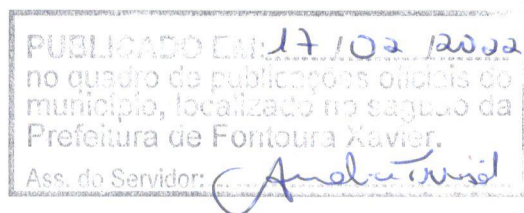 PUBLICADO EM: 17 / 02 / 2022
no quadro de publicações oficiais do
município, localizado no saguão da
Prefeitura de Fontoura Xavier.
Ass. do Servidor: